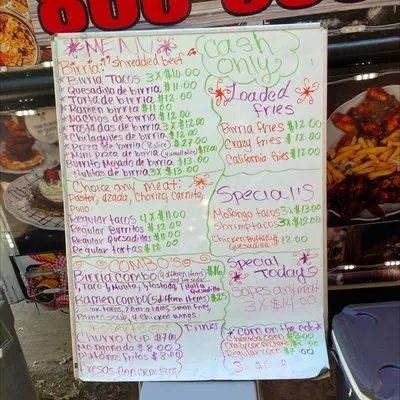 MENU
Birria "shreaded beef"
Birria Tacos 3x $10.00
Quesadilla de birria $11.00
Torta de birria $12.00
Ramen birria $11.00
Nachos de birria $12.00
Tostadas de birria 3x $12.00
Chilaquiles de birria $12.00
Pizza de birria $27.00
Mini Pizza de birria
Burrito Mojado de birria $13.00
Mulitas de birria 3x $13.00
Choice any meat:
Pastor, asada, chorizo, carnita,
Pollo
Regular tacos 4x $11.00
Regular Burritos $12.00
Regular Quesadilla $11.00
Regular tortas $12.00
COMBO'S
Birria combo (4 different items) $16
1 taco, 1 Mulita, 1 tostada, 1 Quesadilla
Ramen combo (5 different items) $25
Churro cup $7.00
$8.00
Platanos fritos $8.00
Fresas con crema
Drinks
Cash
Only
Loaded
Fries
Birria Fries $12.00
Crazy Fries $12.00
California fries $12.00
Specials
tacos 3x $13.00
Shrimp tacos 3x $12.00
Chicken Buffalo
Quesadilla $12.00
Special
Today
Sopes any meat
3x $14.00
Corn on the cob
Regular corn